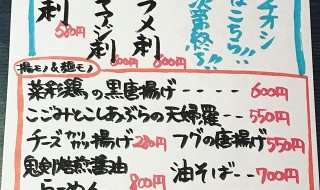 オシ
はこちら!!
刺
580円
刺
800円
フメ刺
800円
揚モノ&麺モノ
薬彩鶏の黒唐揚げ----600円
こごみとこしあぶらの天婦羅--550円
チーズカリカリ揚げ280円
フグの唐揚げ550円
鬼剣焙煎醤油らーめん800円
油そば--700円